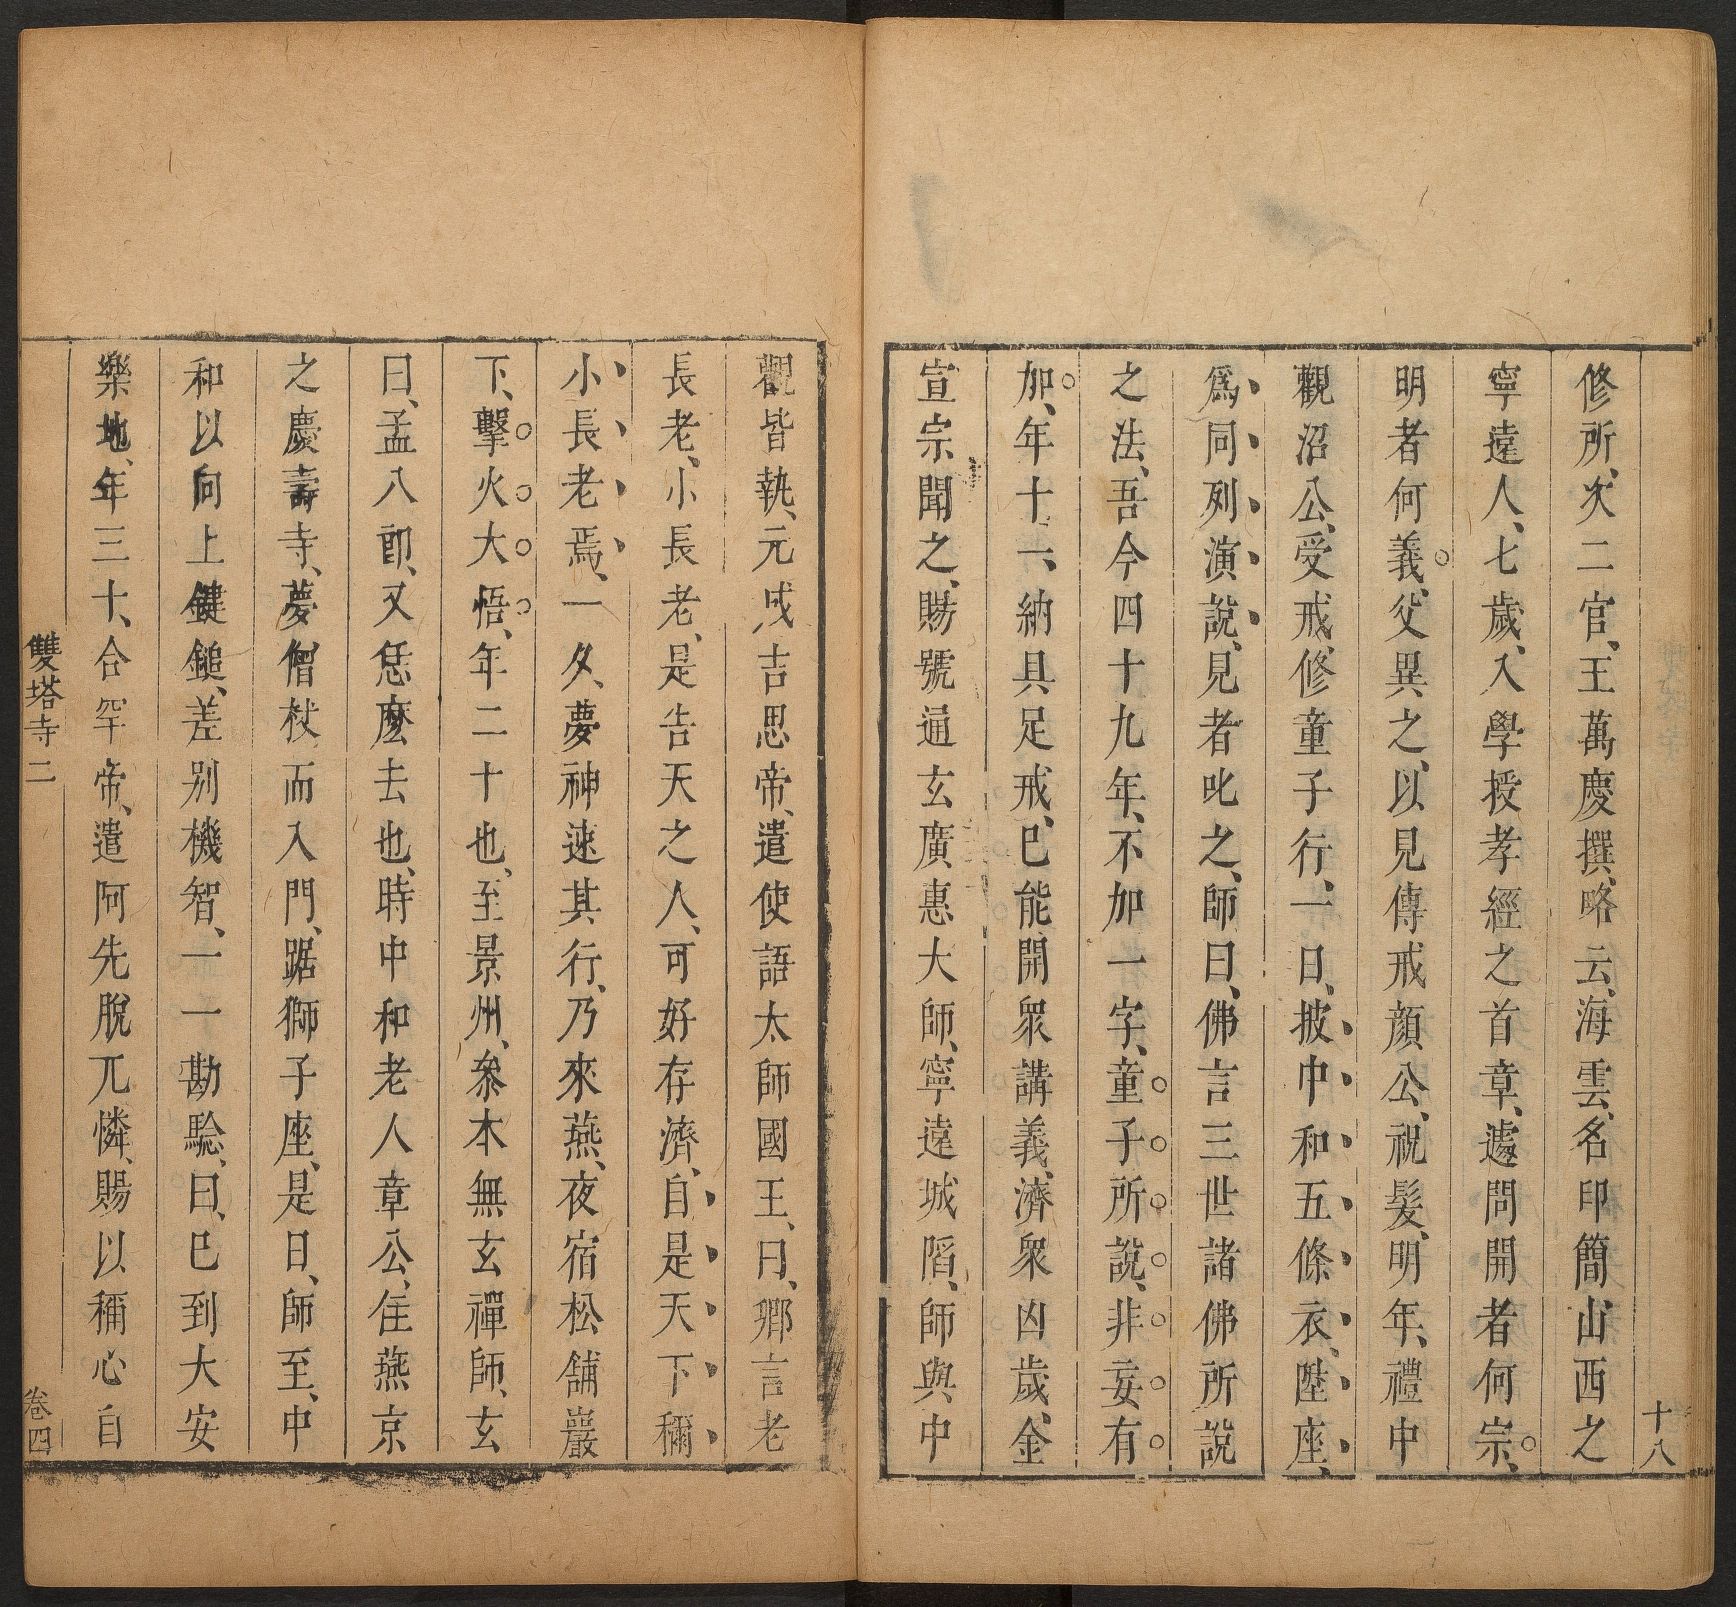 十八
修所、次二官、王萬慶撰、略云、海雲、名印簡、山西之
寧遠人、七歲、入學、授孝經之首章、遽問開者何宗、
明者何義、父異之、以見傳戒顔公、祝髮、明年、禮中
觀沼公、受戒、修童子行、一日、披中和五條衣、陞座、
爲同列演說、見者叱之、師曰、佛言三世諸佛所說
之法、吾今四十九年、不加一字、童子所說、非妄有
加、年十一、納具足戒、已能開衆講義、濟衆凶歲、金
宣宗聞之、賜號通玄廣惠大師、寧遠城陷、師與中
觀皆執、元成吉思帝、遣使語太師國王、曰、鄉言老
長老、小長老、是告天之人、可好存濟、自是天下稱
小長老焉、一夕、夢神速其行、乃來燕、夜宿松舖巖
下、擊火大悟、年二十也、至景州、參本無玄禪師、玄
曰、孟八郎、又恁麼去也、時中和老人章公、住燕京
之慶壽寺、夢僧杖而入門、踞獅子座、是日、師至、中
和以向上鍵鎚、差别機智、一一勘驗、曰、已到大安
樂地、年三十、合罕帝、遣阿先脫兀憐、賜以稱心自
雙塔寺二
卷四